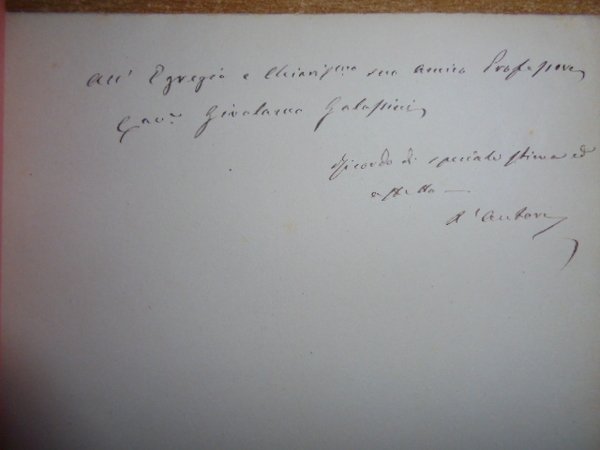 All' Egregio e Chiariss.mo suo amico Professore
Cav.re Girolamo Galassini
Ricordo di speciale stima ed
affetto —
L'Autore